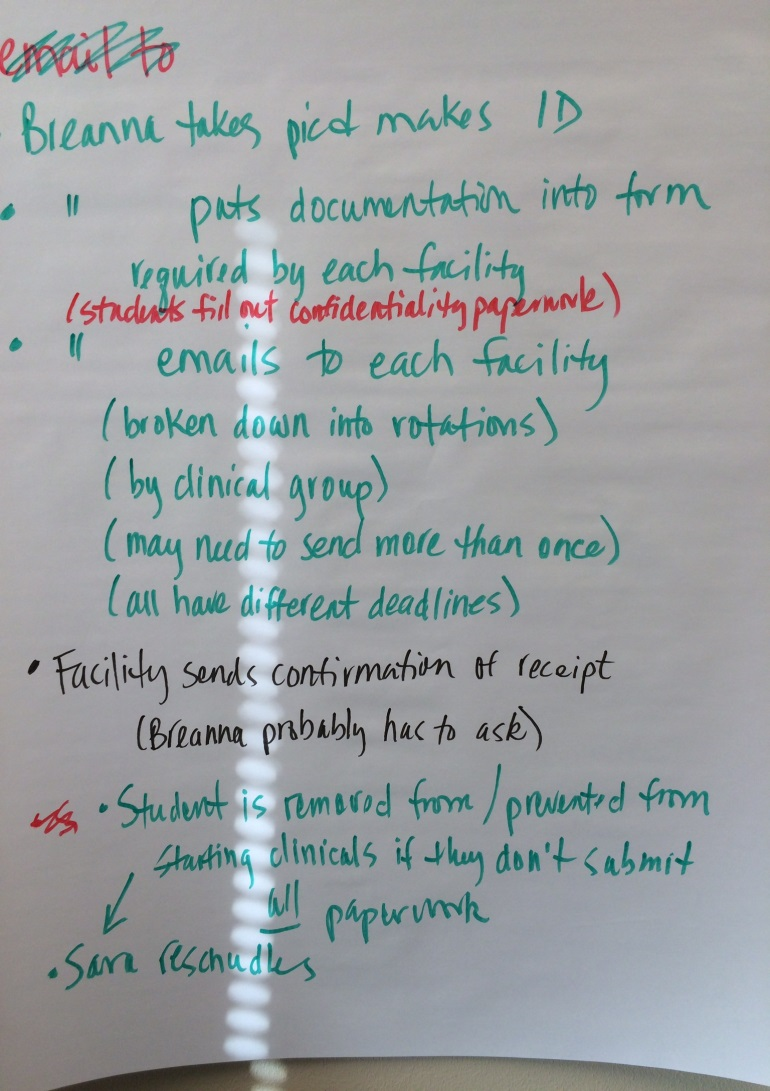 email to
• Breanna takes picd makes ID
• " puts documentation into form
required by each facility
(students fill out confidentiality paperwork)
• " emails to each facility
(broken down into rotations)
(by clinical group)
(may need to send more than once)
(all have different deadlines)
• Facility sends confirmation of receipt
(Breanna probably has to ask)
• Student is removed from/prevented from
starting clinicals if they don't submit
all paperwork
• Sara reschudles